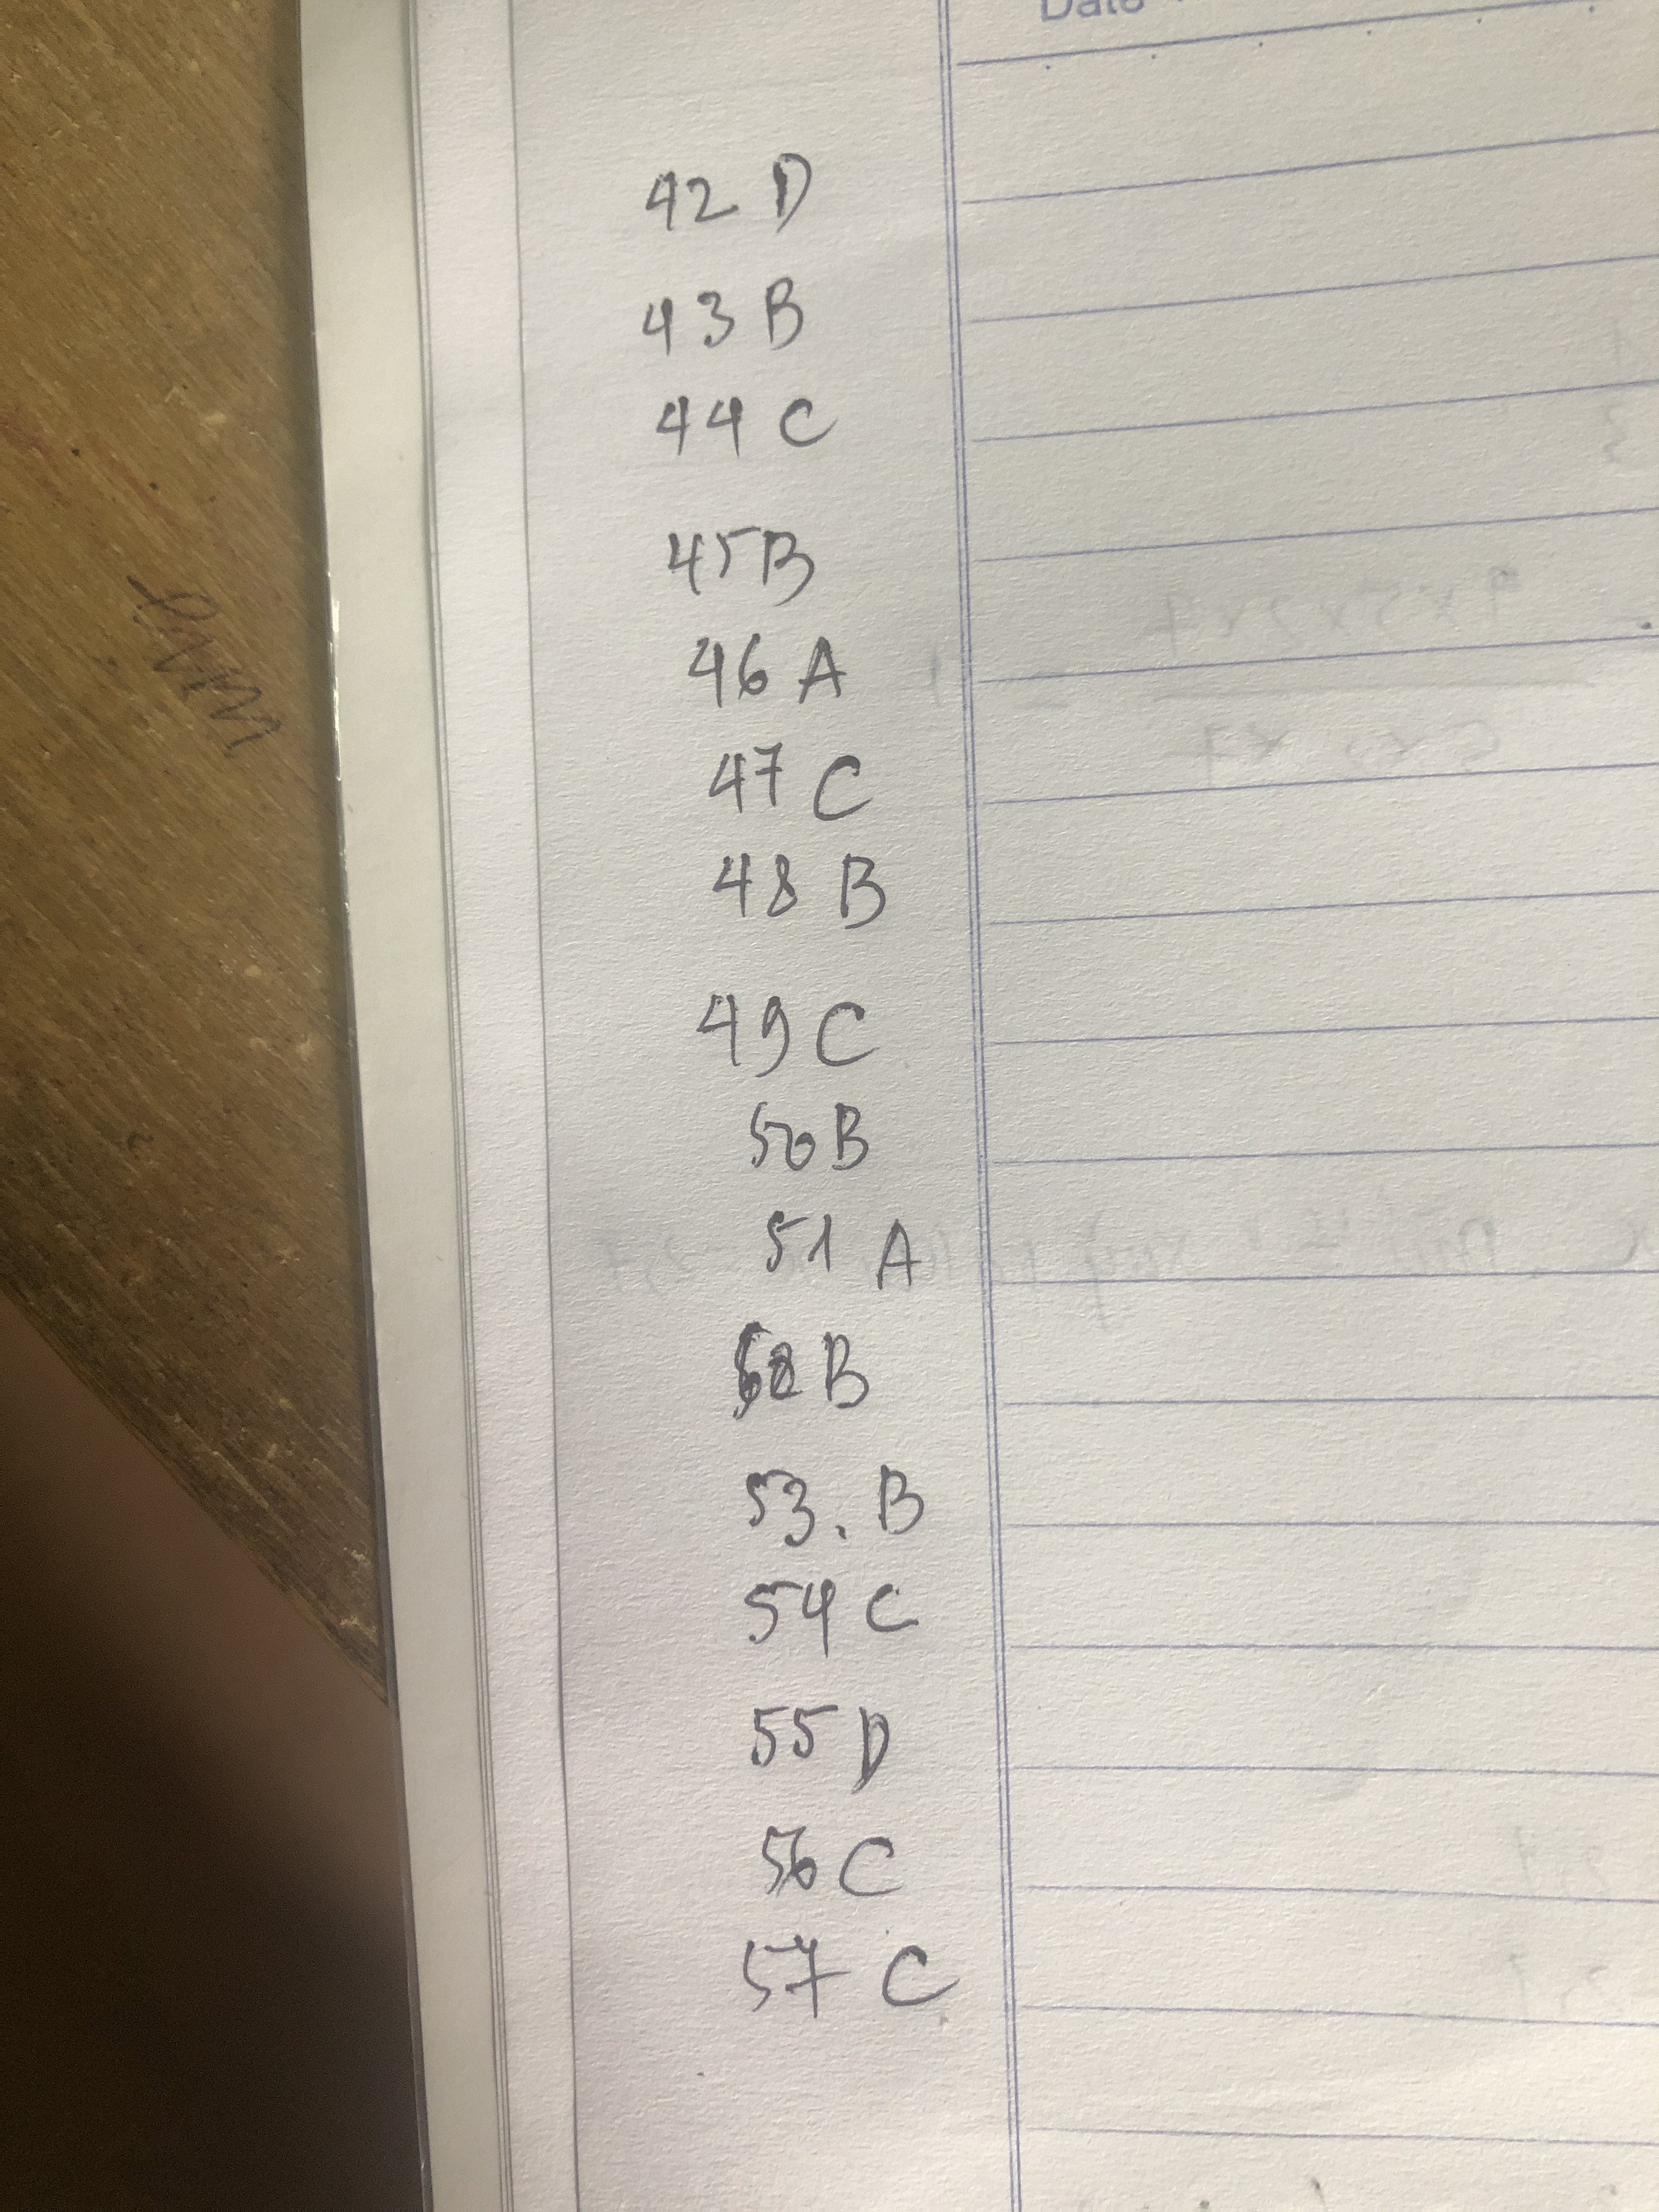 Date
42 D
43 B
44 C
45 B
46 A
47 C
48 B
49 C
50 B
51 A
52 B
53. B
54 C
55 D
56 C
57 C